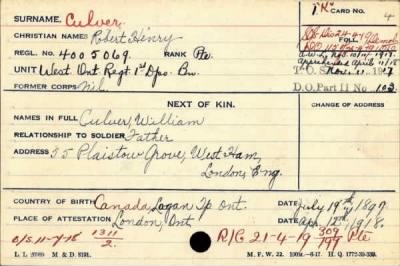 SURNAME. Culver. CARD NO.
CHRISTIAN NAMES Robert Henry FOLL
REGL. NO. 4005069 RANK Pte
UNIT West Ont Regt 1st Dpo. Bn. T.O.S. Nov. 10 1917
FORMER CORPS Nil D.O. Part II No. 102
NEXT OF KIN. CHANGE OF ADDRESS
NAMES IN FULL Culver, William
RELATIONSHIP TO SOLDIER Father
ADDRESS 55 Plaistow Grove, West Ham,
London, Eng.
COUNTRY OF BIRTH Canada, Logan Tp Ont. DATE July 19th 1897
PLACE OF ATTESTATION London, Ont DATE Apr 12th 1918.
O/S 11-7-18 1311/2 R/C 21-4-19 309/199 Pte
L. L. M & D. 8191. M. F. W. 22. H. Q. 1772-39-339.